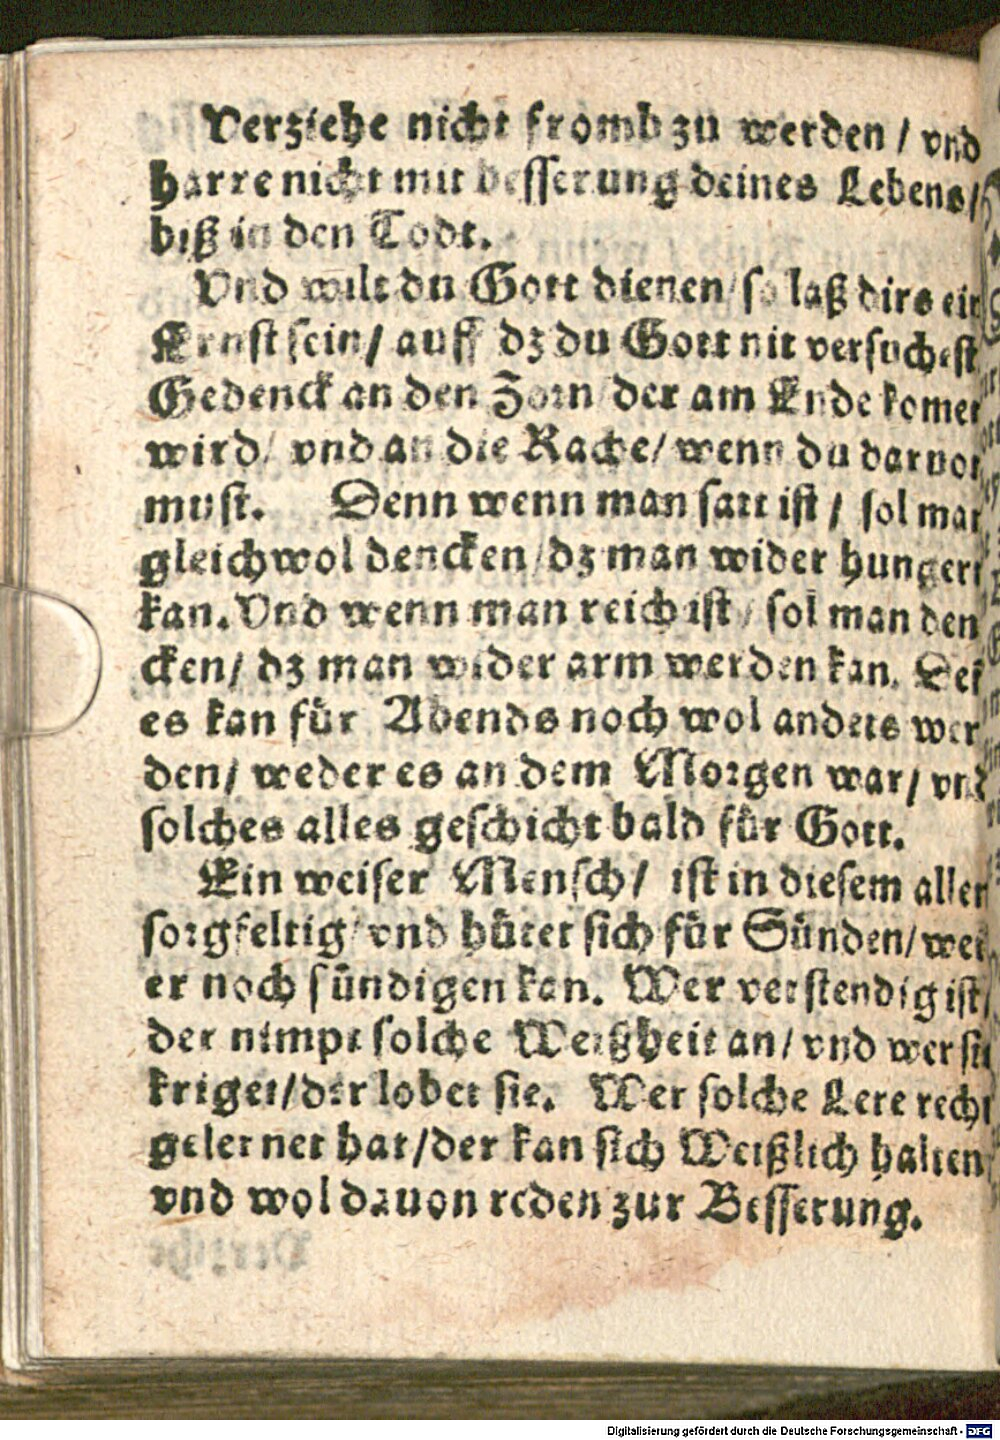 Verziehe nicht fromb zu werden / vnd
harre nicht mit besserung deines Lebens /
biß in den Todt.
Vnd wilt du Gott dienen / so laß dirs ein
Ernst sein / auff dz du Gott nit versuchest
Gedenck an den Zorn der am Ende komen
wird / vnd an die Rache / wenn du daruon
must. Denn wenn man satt ist / sol man
gleichwol dencken / dz man wider hungern
kan. Vnd wenn man reich ist / sol man den
cken / dz man wider arm werden kan. Deñ
es kan für Abends noch wol anders wer
den / weder es an dem Morgen war / vnd
solches alles geschicht bald für Gott.
Ein weiser Mensch / ist in diesem allen
sorgfeltig / vnd hütet sich für Sünden / weil
er noch sündigen kan. Wer verstendig ist /
der nimpt solche Weißheit an / vnd wer sie
kriget / der lobet sie. Wer solche Lere recht
gelernet hat / der kan sich Weißlich halten
vnd wol dauon reden zur Besserung.
Digitalisierung gefördert durch die Deutsche Forschungsgemeinschaft - DFG